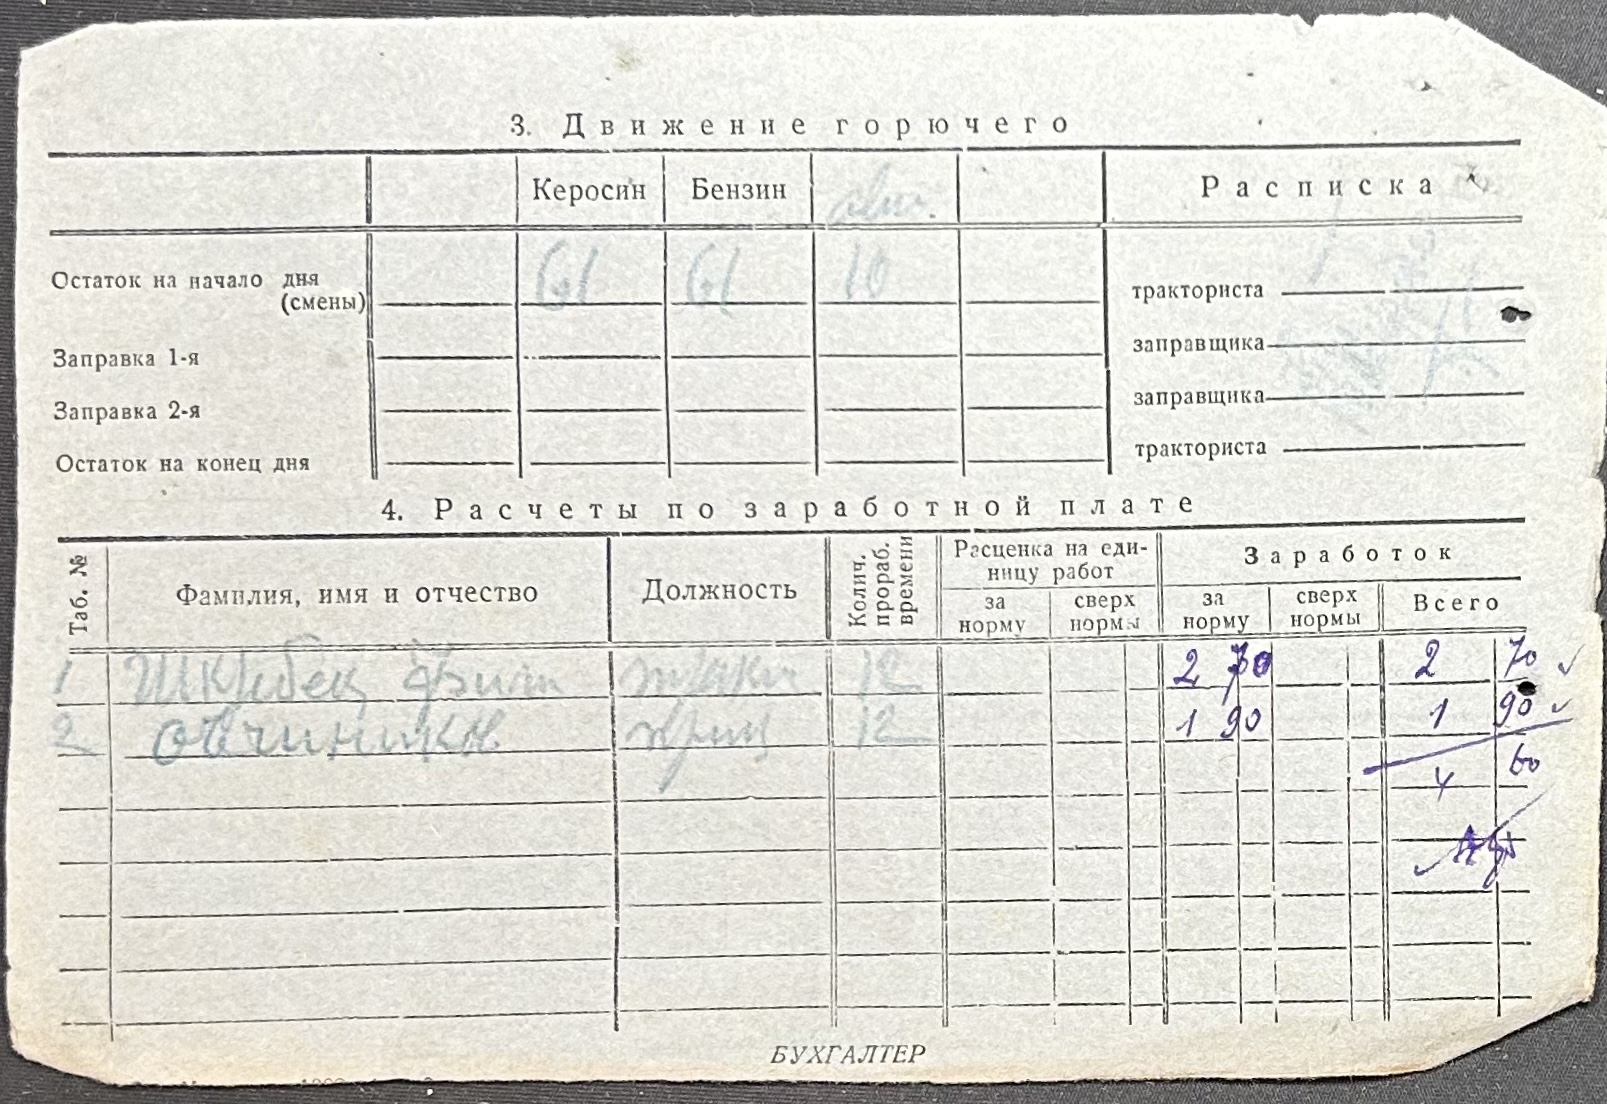 3. Движение горючего
Керосин Бензин Расписка
Остаток на начало дня (смены) 61 61 10 тракториста
Заправка 1-я заправщика
Заправка 2-я заправщика
Остаток на конец дня тракториста
4. Расчеты по заработной плате
Таб. № Фамилия, имя и отчество Должность Колич. прораб. времени Расценка на единицу работ Заработок
за норму сверх нормы за норму сверх нормы Всего
1 12 2 70 2 70
2 12 1 90 1 90
4 60
БУХГАЛТЕР